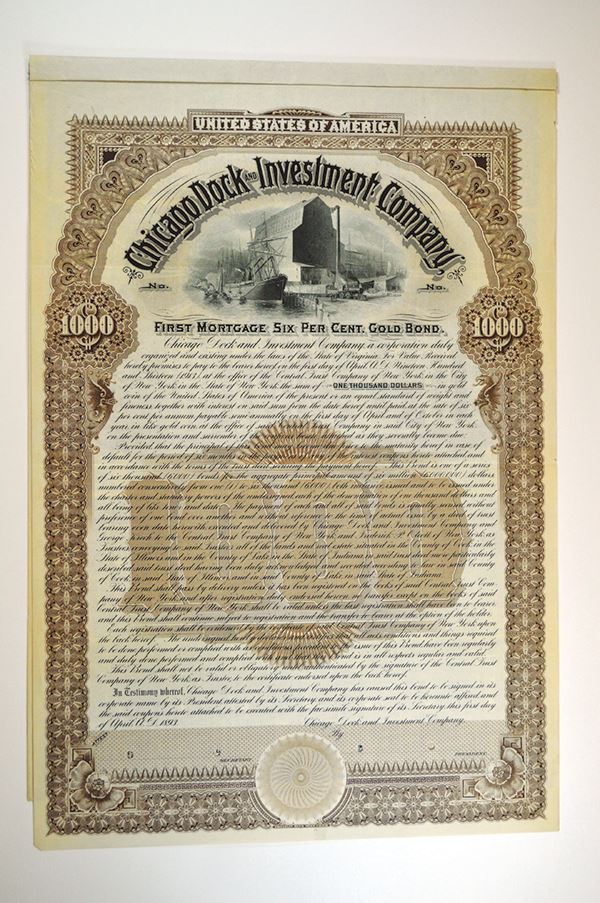 UNITED STATES OF AMERICA
Chicago Dock AND Investment Company,
No. No.
FIRST MORTGAGE SIX PER CENT. GOLD BOND.
$1000 $1000
Chicago Dock and Investment Company a corporation duly
organized and existing under the laws of the State of Virginia For Value Received
hereby promises to pay to the bearer hereof, on the first day of April A.D. Nineteen Hundred
and Thirteen (1913) at the office of the Central Trust Company of New York in the City
of New York in the State of New York the sum of ONE THOUSAND DOLLARS in gold
coin of the United States of America of the present or an equal standard of weight and
fineness together with interest on said sum from the date hereof until paid, at the rate of six
per cent per annum payable semi-annually on the first day of April and of October in each
year, in like gold coin at the office of Company in said City of New York
on the presentation and surrender of the coupons hereto attached as they severally become due.
Provided that the principal of this bond may the maturity hereof in case of
default for the period of six months in the interest coupons hereto attached and
in accordance with the terms of the trust deed securing the payment hereof. This Bond is one of a series
of six thousand (6000) bonds for the aggregate principal amount of six million (6,000,000) dollars
numbered consecutively from one to six thousand (6000) both inclusive issued and to be issued under
the charter and statutory powers of the undersigned, each of the denomination of one thousand dollars and
all being of like tenor and date. The payment of each and all of said bonds is equally secured without
preference of one bond over another and without reference to the time of actual issue by a deed of trust
bearing even date herewith executed and delivered by Chicago Dock and Investment Company and
George to the Central Trust Company of New York and Frederick P. of New York as
Trustees conveying to said Trustees all of the lands and real estate situated in the County of Cook in the
State of Illinois and in the County of Lake in the State of Indiana in said trust deed more particularly
described said trust deed having been duly acknowledged and recorded according to law in said County
of Cook in said State of Illinois and in said County of Lake in said State of Indiana.
This Bond shall pass by delivery unless it has been registered on the books of said Central Trust Com-
pany of New York and after registration duly endorsed hereon no transfer except on the books of said
Central Trust Company of New York shall be valid unless the last registration shall have been to bearer
and this Bond shall continue subject to registration and the transfer to bearer at the option of the holder.
Each registration shall be Central Trust Company of New York upon
the back hereof. The undersigned hereby all acts conditions and things required
to be done performed or complied with issue of this Bond have been regularly
and duly done performed and complied with and that this Bond is in all respects regular and valid.
This Bond shall not be valid or obligatory until authenticated by the signature of the Central Trust
Company of New York, as Trustee to the certificate endorsed upon the back hereof.
In Testimony whereof, Chicago Dock and Investment Company has caused this bond to be signed in its
corporate name by its President attested by its Secretary and its corporate seal to be hereunto affixed and
the said coupons hereto attached to be executed with the facsimile signature of its Secretary this first day
of April A.D. 1893.
Chicago Dock and Investment Company.
ATTEST
By
SECRETARY
PRESIDENT